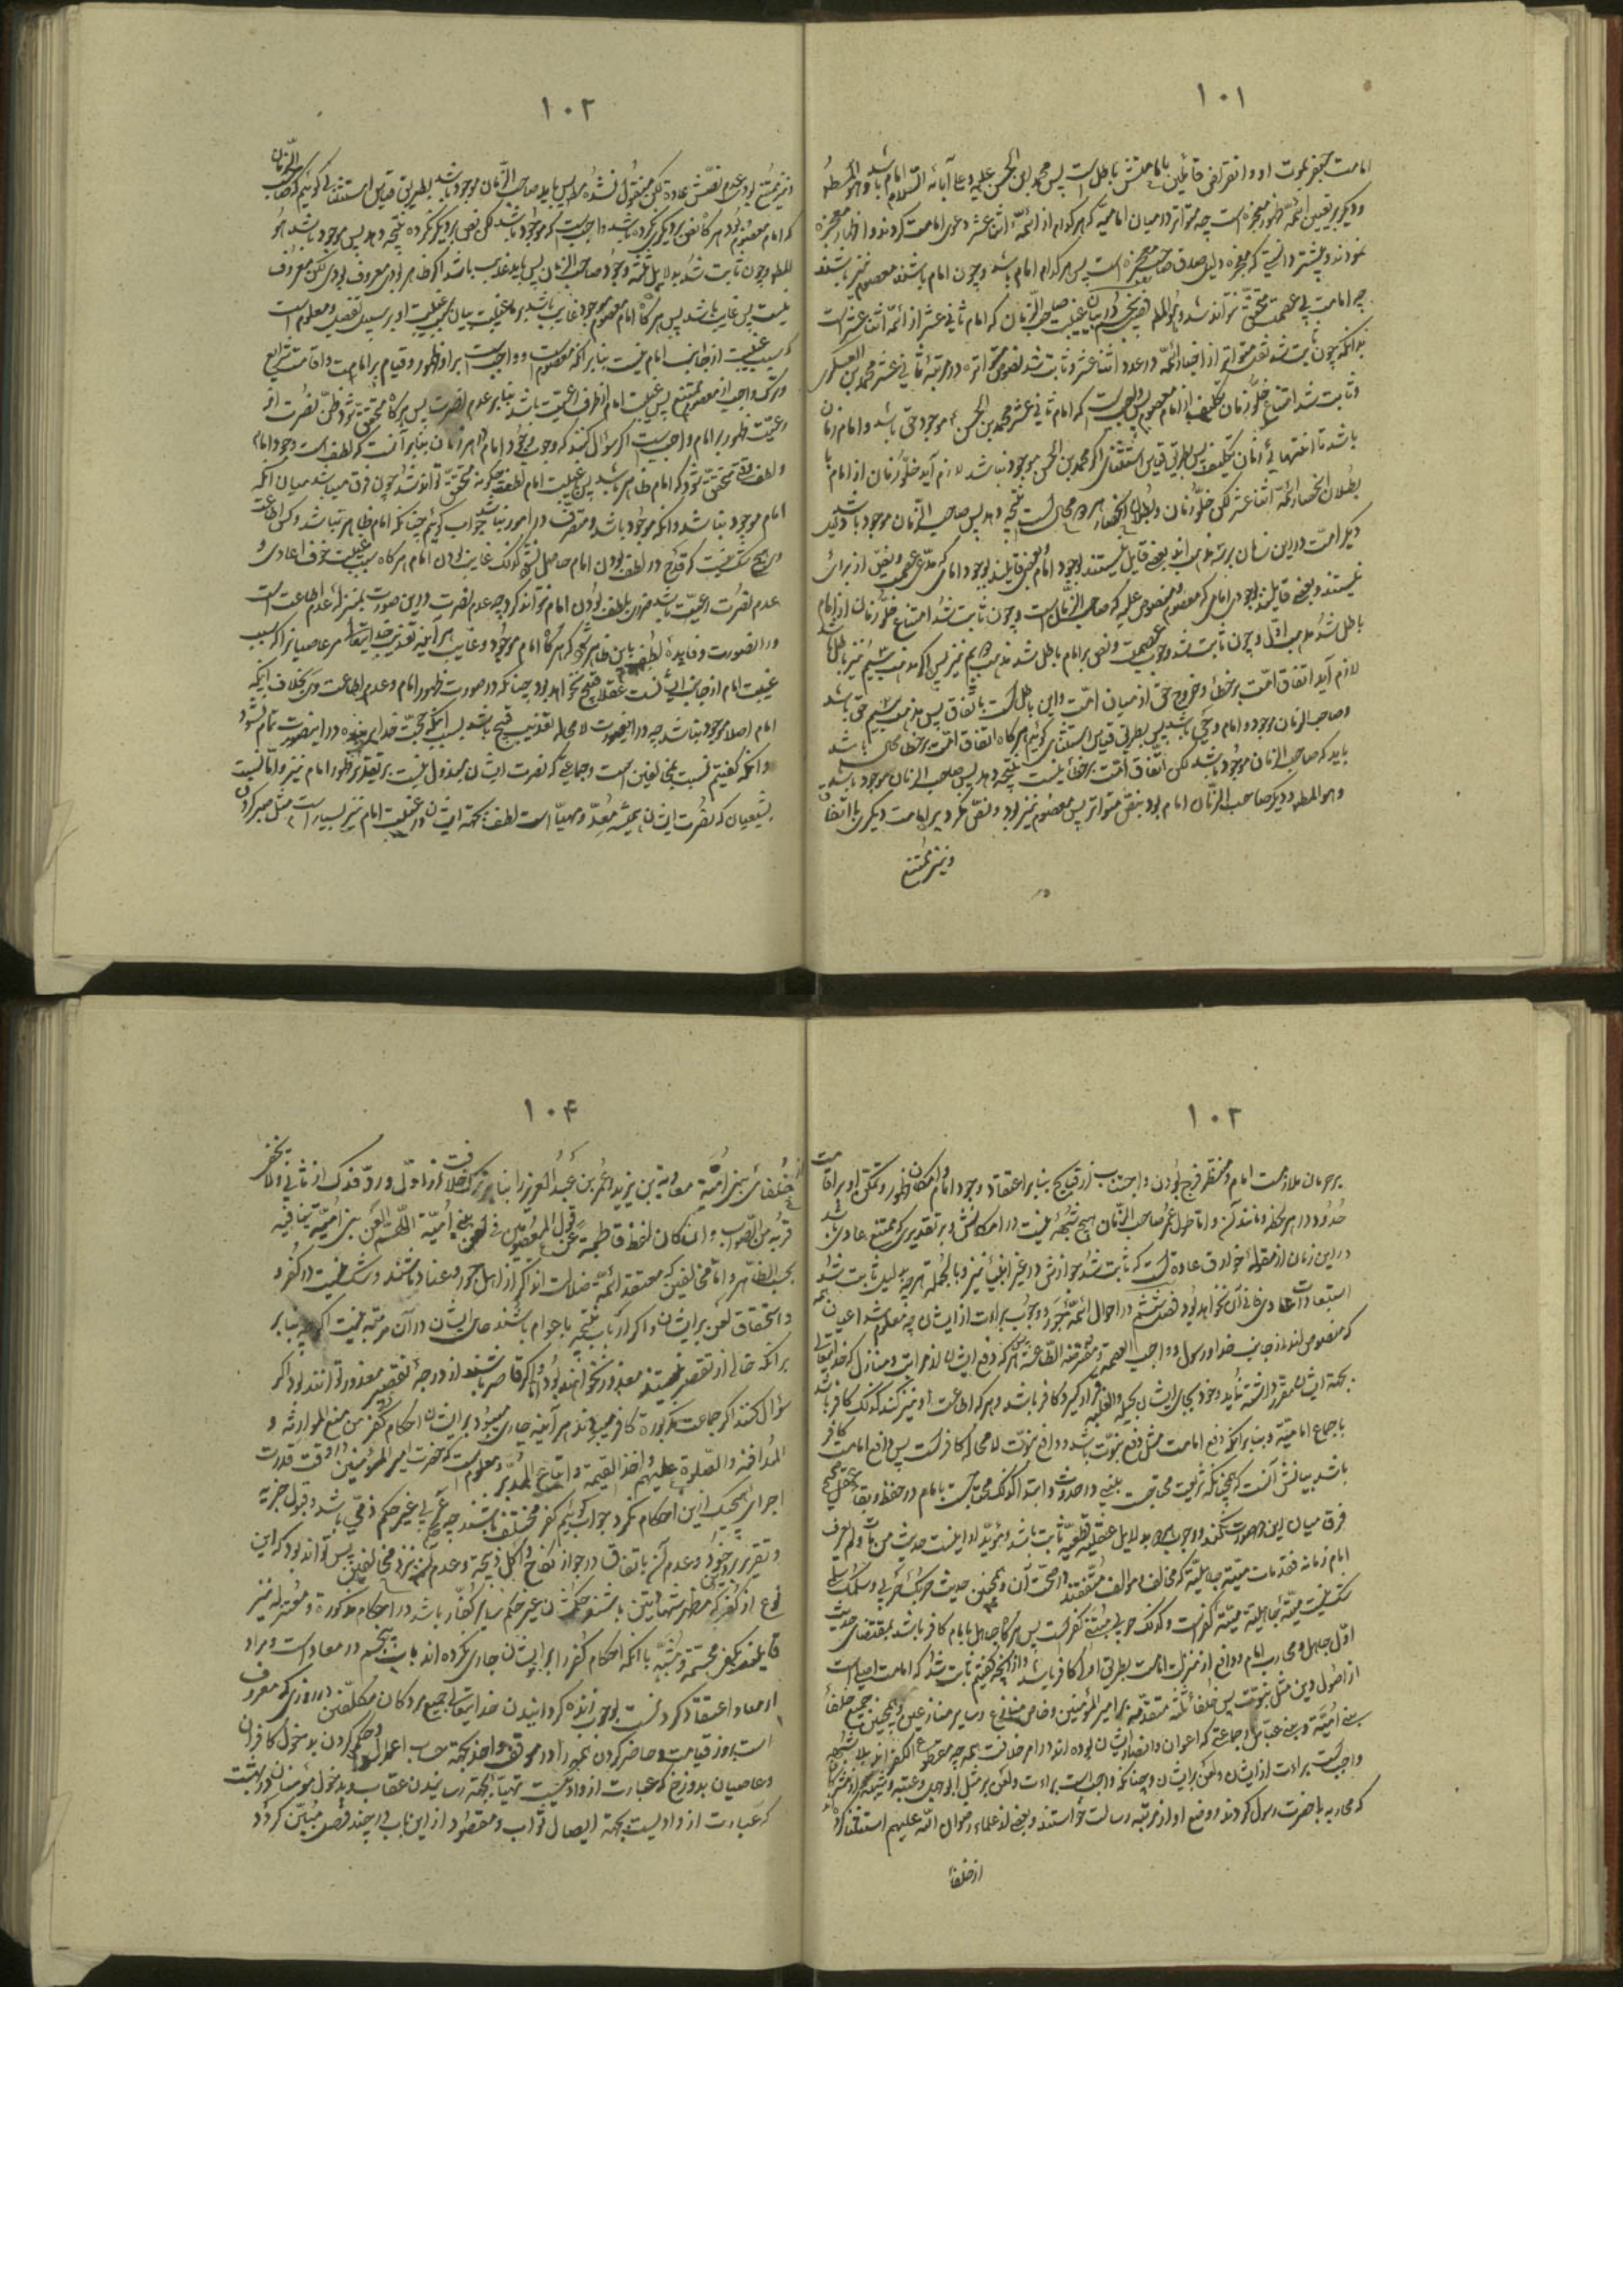 ١٠١
امامت جعفر بموت او و انقراض قائلين بامامتش باطل است پس محمد ابن الحسن عليه و على آبائه السّلام امام باشد و هو المطلوب
و ديكر بر تعيين ائمّه ظهور معجزه است چه متواتر در ميان اماميّه كه هر كدام از ائمّه اثنا عشر دعوى امامت كردند و اظهار معجزه
نمودند و پيشتر دانستى كه معجزه دليل صدق صاحب معجزه است پس هر كدام امام باشد و چون امام باشند معصوم نيز باشند
چه امامت بى عصمت متحقّق نتواند شد و هو المطلوب فصل پنجم در بيان غيبت صاحب الزّمان كه امام ثانى عشر از ائمّه اثنا عشر است
بدانكه چون ثابت شد بنقل متواتر از اخبار ائمّه در عدد اثنا عشر و ثابت شد بنصوص متواتره در مرتبه ثانى عشر محمد بن العسكرى
و ثابت شد امتناع خلّو زمان تكليف از امام معصوم پس واجب است كه امام ثانى عشر محمد بن الحسن موجود حىّ باشد و امام زمان
باشد تا انتهاى زمان تكليف پس بطريق قياس استثنائى اكر محمد بن الحسن موجود نباشد لازم آيد خلّو زمان از امام يا
بطلان انحصار ائمّه اثنا عشر لكن خلّو زمان و بطلان انحصار هر دو محال است نتيجه دهد پس صاحب الزّمان موجود باشد دليل
ديكر امّت در اين زمان بر سه مذهب اند بعضى قايل نيستند بوجود امام و بعضى قايلند بوجود امامى كه مدّعى عصمت و نصّ از براى
نيستند و بعضى قايلند بوجود امامى كه معصوم و منصوص عليه كه صاحب الزّمان است و چون ثابت شد امتناع خلّو زمان از امام
باطل شد مذهب اوّل و چون ثابت شد وجوب عصمت و نصّ بر امام باطل شد مذهب دويم نيز پس اكر مذهب سيّم نيز باطل باشد
لازم آيد اتفاق امّت بر خطا و خروج حق از ميان امّت و اين باطل است باتفاق پس مذهب سيّم حق باشد
و صاحب الزمان موجود و امام و حىّ باشد پس بطريق قياس استثنائى كوئيم هر كاه اتفاق امّت بر خطا محال باشد
بايد كه صاحب الزمان موجود باشد لكن اتّفاق امّت بر خطا نيست نتيجه دهد پس صاحب الزمان موجود باشد
و هو المطلوب و ديكر صاحب الزّمان امام بود بنصّ متواتر پس معصوم نيز بود و نصّ نكرد بر امامت ديكرى بالاتفاق
و نيز ممتنع
١٠٢
و نيز ممتنع بود عدم نصّش عادة لكن منقول نشده پس بايد صاحب الزّمان موجود باشد بطريق قياس استثنائى كوئيم كه صاحب الزّمان
كه امام معصوم بود هر كاه نصّ بر ديكرى نكرده باشد واجب است كه موجود باشد لكن نصّ بر ديكر نكرده نتيجه دهد پس موجود باشد و هو
المطلوب و چون ثابت شد بدلايل ثلثه وجود صاحب الزمان پس بايد غايب باشد اكر ظاهر بودى معروف بودى لكن معروف
نيست پس غايب باشد پس هر كاه امام معصوم موجود غايب باشد بر ما نيست بيان سبب غيبت او بر سبيل تفصيل و معلوم است
كه سبب غيبت از جانب امام نيست بنابر آنكه معصوم است و واجب است بر او ظهور و قيام بر امامت و اقامت شرايع
و ترك واجب از معصوم ممتنع پس غيبت امام از طرف رعيّت باشد بنابر عدم نصرت پس هر كاه متحقّق شود ظنّ نصرت از
رعيّت ظهور بر امام واجب است اكر سؤال كنند كه وجوب وجود امام در هر زمان بنابر آنست كه لطف است وجود امام
و لطف وقتى متحقّق شود كه امام ظاهر باشد پس با غيبت امام لطف چكونه متحقّق تواند شد و چون فرق ميباشد ميان آنكه
امام موجود نباشد و آنكه موجود باشد و متصرّف در امور نباشد جواب كوئيم چنانكه امام ظاهر باشد و كسى اطاعت
وى هيچ شك نيست كه قدح در لطف بودن امام حاصل نشود كذلك غايب بودن امام هر كاه سبب غيبت خوف اعادى و
عدم نصرت رعيّت باشد ضررى بلطف بودن امام نتواند كرد چه عدم نصرت در اين صورت بمنزله عدم اطاعت است
در آنصورت و فايده لطف باين ظاهر شود كه هر كاه امام موجود و غايب هر آينه تعذيب خدايتعالى مر عاصيانرا كه سبب
غيبت امام از جانب ايشانست عقلا قبيح نخواهد بود چنانكه در صورت ظهور امام و عدم اطاعت وى بخلاف اينكه
امام اصلا موجود نباشد چه در اينصورت لامحاله تعذيب قبيح باشد بسبب آنكه حجّت خداى بر بنده در اينصورت تمام نشود
و آنكه كفتيم نسبت بمخالفين است و جماعتى كه نصرت ايشان مبذول نيست بر تقدير ظهور امام نيز و امّا نسبت
بشيعيان كه نصرت ايشان هميشه مُعدّ و مهيّا است لطف بجهة ايشان در غيبت امام نيز بسيار است مثل صبر كردن
١٠٣
بر حرمان ملازمت امام و منتظر فرج بودن و اجتناب از قبايح بنابر اعتقاد وجود امام و امكان ظهور و تمكن او بر اقامت
حدود در هر لحظه و مانند آن و امّا طول عمر صاحب الزّمان هيچ شبهه نيست در امكانش و بر تقديرى كه ممتنع عادى باشد
در اين زمان از مقوله خوارق عادة است كه ثابت شد جوازش در غير انبياء نيز و بالجمله هر چه بدليل ثابت شد
استبعادات عادى منافى آن نخواهد بود فصل ششم در احوال ائمّه جَور و وجوب برائت از ايشان چه معلوم شد اعيان ائمّه
كه منصوص اند از جانب خدا و رسول و واجب العصمة و مفترضة الطّاعة پس هر كه دفع ايشان از مراتب و منازل كه خدايتعالى
بجهة ايشان مقرّر داشته نمايد و خود بجاى ايشان بحيله و الغلبه قرار كيرد كافر باشد و هر كه اطاعت او نيز كند كذلك كافر باشد
باجماع اماميّه و بنابر آنكه دفع امامت مثل دفع نبوّت باشد و دافع نبوّت لامحاله كافر است پس دافع امامت كافر
باشد بيانش آنست كه همچنانكه شريعت محتاج است بنبى در حدوث و ابتدا كذلك محتاج است بامام در حفظ و بقا
فرق ميان اين دو صورت نكنند و وجوب امام بدلايل عقليّه قطعيّه ثابت باشد و مؤيّد او اينست حديث من مات و لم يعرف
امام زمانه فقد مات ميتة جاهليّة كه مخالف و مؤالف متّفقند در صحّت آن و همچنين حديث حربك حربى و سلمك سلمى
شك نيست ميتة جاهليّة ميتة كفر است و كذلك حرب نبى كفر است پس هر كاه جاهل بامام كافر باشد بمقتضاى حديث
اوّل جاهل و محارب امام و دافع او از منزلت امامت بطريق اولى كافر باشد و از آنچه كفتيم ثابت شد كه امامت اصليست
از اصول دين مثل نبوّت پس خلفاء ثلثه متقدّمين بر امير المؤمنين و خاص و منازع و ساير منازعين و همچنين جميع خلفاء
بنى اميّه و بنى عبّاس و جماعتى كه اعوان و انصار ايشان بوده اند در امر خلافت همه چه مقطوع الكفر اند بلا شبهه
واجب است برائت از ايشان و لعن بر ايشان چنانكه واجب است برائت و لعن بر مثل ابو جهل و عتبه و شيبه
كه محاربه با حضرت رسول كردند و دفع او از مرتبه رسالت خواستند و بعضى از علماء رضوان اللّه عليهم استثنا كرده اند
از خلفاء
١٠٤
از خلفاى بنى اميّه معاوية بن يزيد و عمر بن عبد العزيز را بنابر ترك خلافت از اوّل و ردّ فدك از ثانى و لا يخفى
قربه من الصّواب و ان كان لفظ قاطبة فى قول المعصومين فى لعن بنى اميّة اللّهم العن بنى اميّة قاطبة ينافيه
بحسب الظّاهر و امّا مخالفين كه معتقد ائمّه ضلالت اند اكر از اهل جور و عناد باشند و شك نيست در كفر و
و استحقاق لعن بر ايشان و اكر از باب تقليد يا عوام باشند حال ايشان در آن مرتبه نيست اكر چه بنابر
بر آنكه خالى از تقصير نيستند معذور نخواهند بود و اكر قاصر باشند از درجه تقصير معذور توانند بود اكر
سؤال كنند اكر جماعت مذكوره كافر ميبودند هر آينه جارى ميبود بر ايشان احكام كفر من منع الموارثه و
المدافنه و الصّلوة عليهم و اخذ الغنيمة و اتباع المدبر و معلوم است كه حضرت امير المؤمنين در وقت قدرت
اجراى هيچيك از اين احكام نكرد جواب كوئيم كفر مختلف باشند چه حربى غير حكم ذمّى باشد و قبول جزيه
و تقرير بر دين خود و عدم آن باتفاق در جواز نكاح و اكل ذبيحه و عدم آن نيز نزد مخالفين پس تواند بود كه اين
نوع از كفر كه مظهر شهادتين باشند حكمش غير حكم ساير كفّار باشد در احكام مذكوره و معتزله نيز
قايلند بكفر مجسّمه و مشبّه با آنكه احكام كفر را بر ايشان جارى نكرده اند باب پنجم در معاد است و مراد
از معاد اعتقاد كردنست بوجوب زنده كردانيدن خدايتعالى جميع مردكان مكلّفين در روزى كه معروف
است بروز قيامت و حاضر كردن همه را در موقف واحد بجهة حساب اعمال و حكم كردن بدخول كافران
و عاصيان بدوزخ كه عبارت از داريست مهيّا بجهة رسانيدن عقاب و بدخول مؤمنان در بهشت
كه عبارت از داريست بجهة ايصال ثواب و مقصود از اين باب در چند فصل مُبيّن كردد